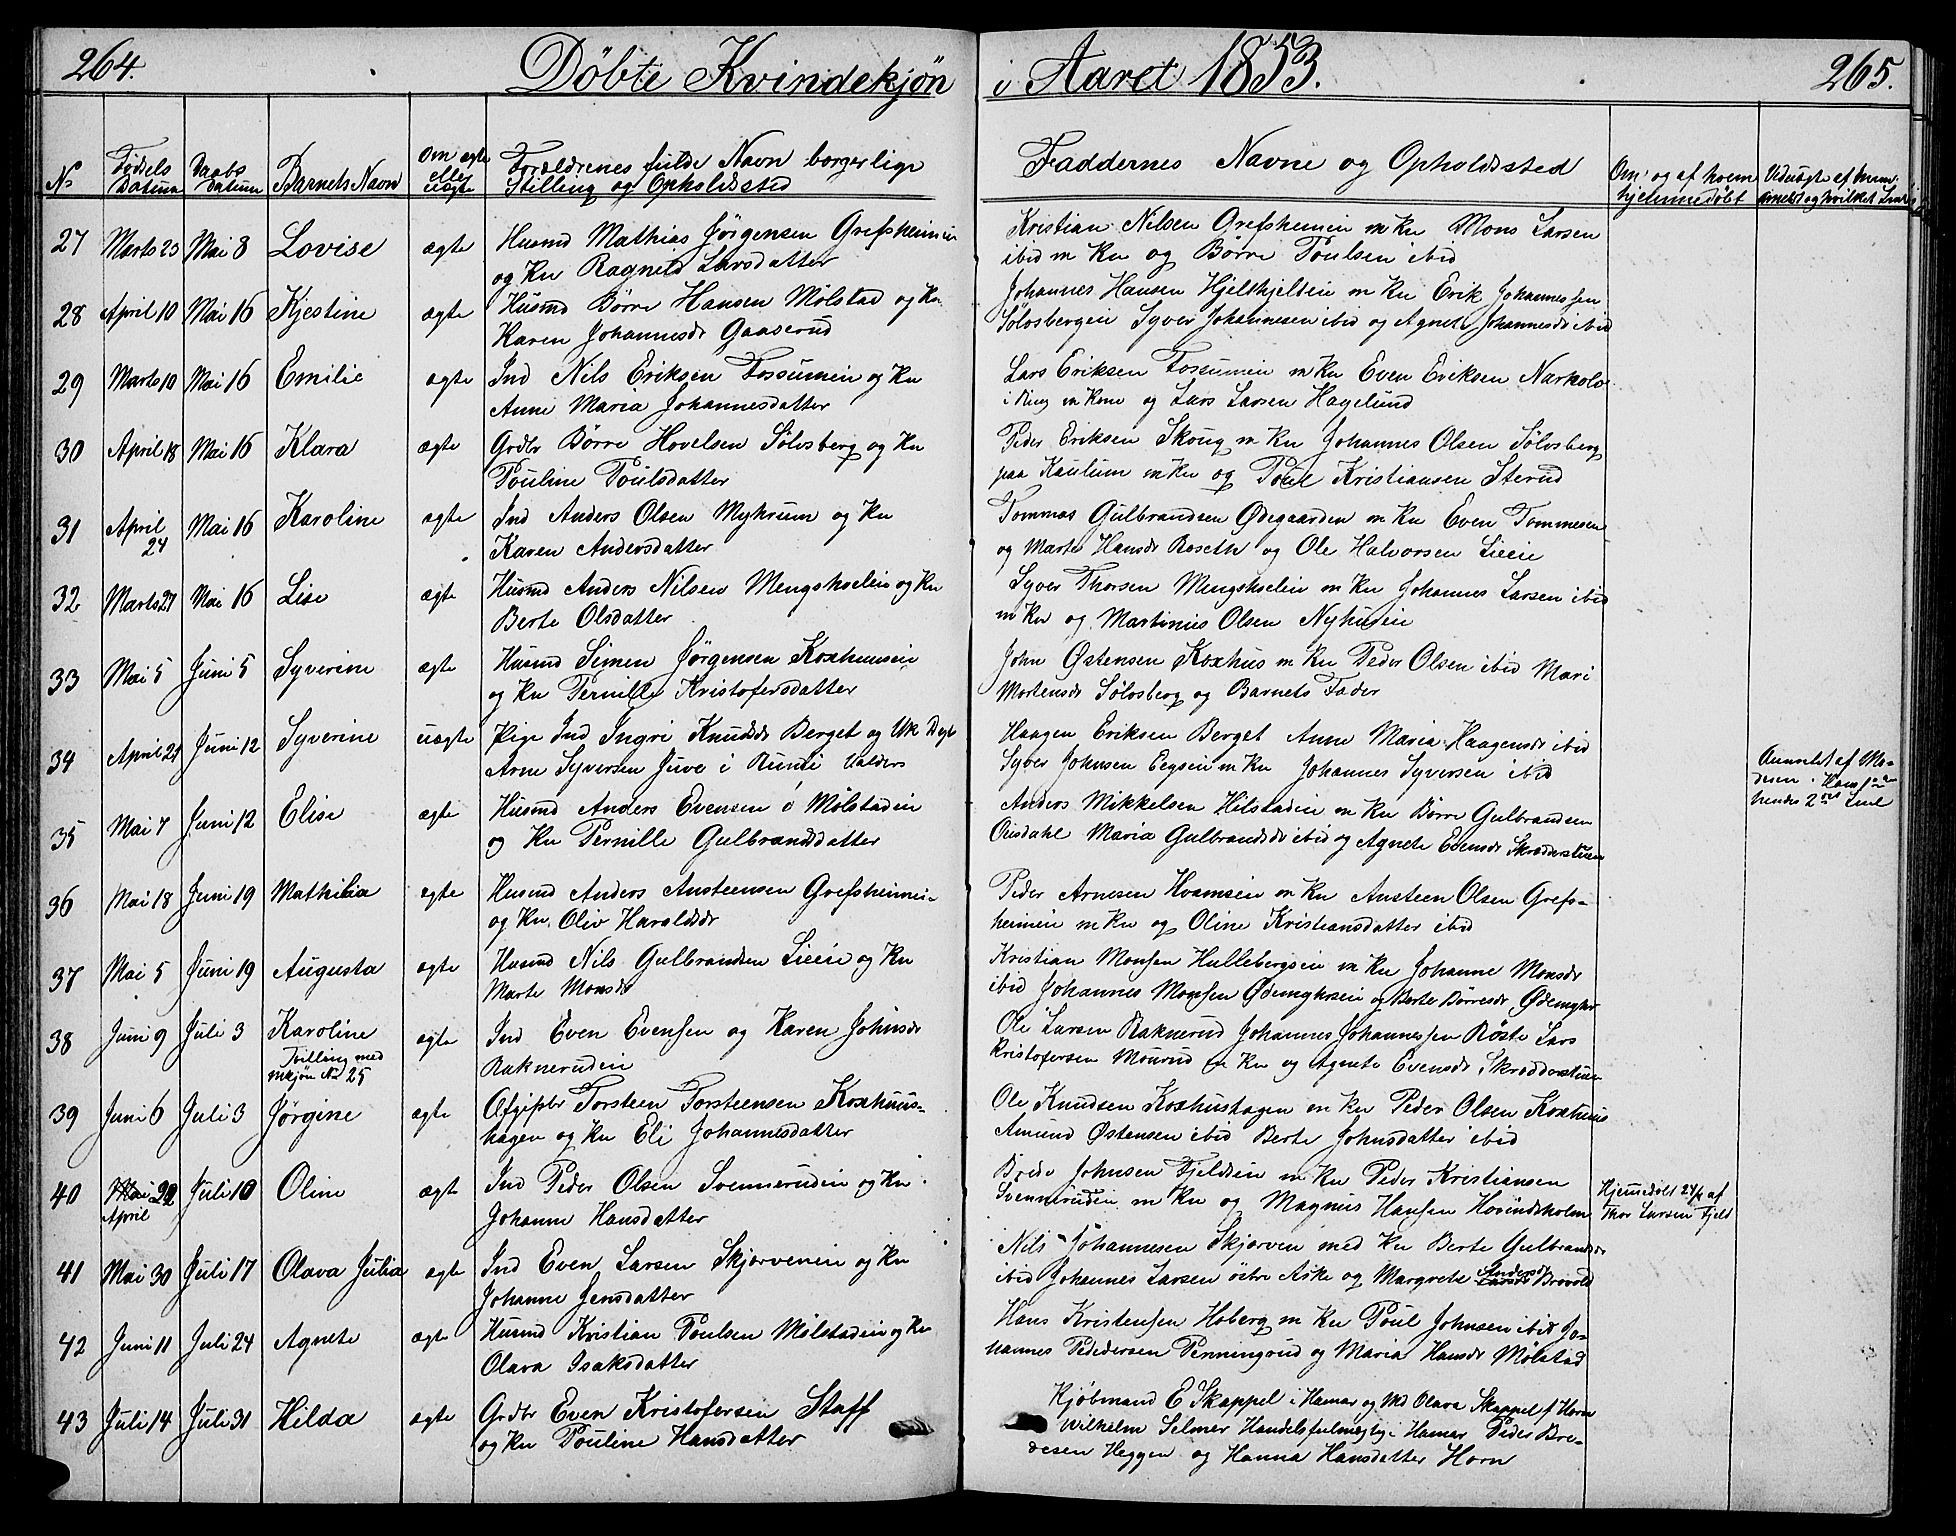 264.
Döbte Kvindekjön i Aaret 1853.
265.
No
Födsels Datum
Daabs Datum
Barnets Navn
Om ægte eller uægte
Forældrenes fulde Navn borgerlige
Stilling og Opholdssted
Faddernes Navne og Opholdssted
Om og af hvem
hjemmedöbt
27 Marts 23 Mai 8 Lovise ægte Husmd Mathias Jörgensen Grefsheimeie
og Kn Ragnild Larsdatter
Kristian Nilsen Grefsheimeie m Kn Mons Larsen
ibid m Kn og Börre Poulsen ibid
28 April 10 Mai 16 Kjestine ægte Husmd Börre Hansen Mölstad og Kn
Karen Johannesdr Gaaserud
Johannes Hansen Hjelskjelseie m Kn Erik Johannesen
Sölvsbergeie Syver Johannesen ibid og Agnete Johannesdr ibid
29 Marts 10 Mai 16 Emilie ægte Ind Nils Eriksen Fossumeie og Kn
Anne Maria Johannesdatter
Lars Eriksen Fossumeie m Kn Even Eriksen
i Ring m Kone og Lars Larsen Hagelund
30 April 18 Mai 16 Klara ægte Grdbr Börre Hovelsen Sölvsberg og Kn
Pouline Poulsdatter
Peder Eriksen Skoug m Kn Johannes Olsen Sölvsberg
paa Kaulum m Kn og Poul Kristiansen Sterud
31 April 24 Mai 16 Karoline ægte Ind Anders Olsen Myhrum og Kn
Karen Andersdatter
Tommas Gulbrandsen Ödegaarden m Kn Even Tommesen
og Marte Hansdr Roseth og Ole Halvorsen Lieeie
32 Marts 27 Mai 16 Lise ægte Husmd Anders Nilsen Mengshoeleie og Kn
Berte Olsdatter
Syver Thorsen Mengshoeleie m Kn Johannes Larsen ibid
m Kn og Martinus Olsen Nyhuseie
33 Mai 5 Juni 5 Syverine ægte Husmd Simen Jörgensen Koxhuuseie
og Kn Pernille Kristofersdatter
John Östensen Koxhus m Kn Peder Olsen ibid Mari
Mortensdr Sölvsberg og Barnets Fader
34 April 21 Juni 12 Syverine uægte Pige Ind Ingri Knudsdr Berget og Uk
Arne Syversen Juve i Valders
Haagen Eriksen Berget Anne Maria Haagensdr ibid
Syver Johnsen m Kn Johannes Syversen ibid
Anmeldt af Mo-
deren
hendes 2den
35 Mai 7 Juni 12 Elise ægte Husmd Anders Evensen Mölstadeie
og Kn Pernille Gulbrandsdatter
Anders Mikkelsen Hilstadeie m Kn Börre Gulbrandsen
Maria Gulbrandsdr ibid og Agnete Evensdr Skrædderstuen
36 Mai 18 Juni 19 Mathilia ægte Husmd Anders Ansteensen Grefsheimeie
og Kn Oliv Haraldsdr
Peder Arnesen Hvamseie m Kn Ansteen Olsen Grefs-
heimeie m Kn og Oline Kristiansdatter ibid
37 Mai 5 Juni 19 Augusta ægte Husmd Nils Gulbrandsen Lieeie og Kn
Marte Monsdr
Kristian Monsen Hullebergseie m Kn Johanne Monsdr
ibid Johannes Monsen Ödemyhreie og Berte Börresdr Ödemyhr
38 Juni 9 Juli 3 Karoline
Tvilling med
mkjön No 25
ægte Ind Even Evensen og Karen Johnsdr
Raknerudeie
Ole Larsen Raknerud Johannes Johannessen Röste Lars
Kristofersen Mourud m Kn og Agnete Evensdr Skrædderstuen
39 Juni 6 Juli 3 Jörgine ægte Afgifsbr Torsteen Torsteensen Koxhuus-
hagen og Kn Eli Johannesdatter
Ole Knudsen Koxhushagen m Kn Peder Olsen Koxhuus
Amund Östensen ibid Berte Johnsdatter ibid
40 Mai 22 April Juli 10 Oline ægte Ind Peder Olsen Svenneruдeie og Kn
Johanne Hansdatter
Brede Johnsen Fjeldseie m Kn Peder Kristiansen
Svennerudeie m Kn og Magnus Hansen Hovindsholm
Hjemmedöbt 24/4 af
Thor Larsen Fjeld
41 Mai 30 Juli 17 Olava Julia ægte Ind Even Larsen Skjerveneie og Kn
Johanne Jensdatter
Nils Johannesen Skjerven med Kn Berte Gulbrandsdr
ibid Johannes Larsen östre Aske og Margrete Larsdr Andersdr Brovold
42 Juni 11 Juli 24 Agnete ægte Husmd Kristian Poulsen Mölstadeie og Kn
Olava Isaksdatter
Hans Kristensen Hoberg m Kn Poul Johnsen ibid Jo-
hannes Pedersen Penningrud og Maria Hansdr Mölstad
43 Juli 14 Juli 31 Hilda ægte Grdbr Even Kristofersen Staff
og Kn Pouline Hansdatter
Kjöbmand E Skappel i Hamar og Md Olava Skappel f Horn
Wilhelm Selmer Handelsfulmægtig i Hamar Peder Bre-
desen Heggen og Hanna Hansdatter Horn